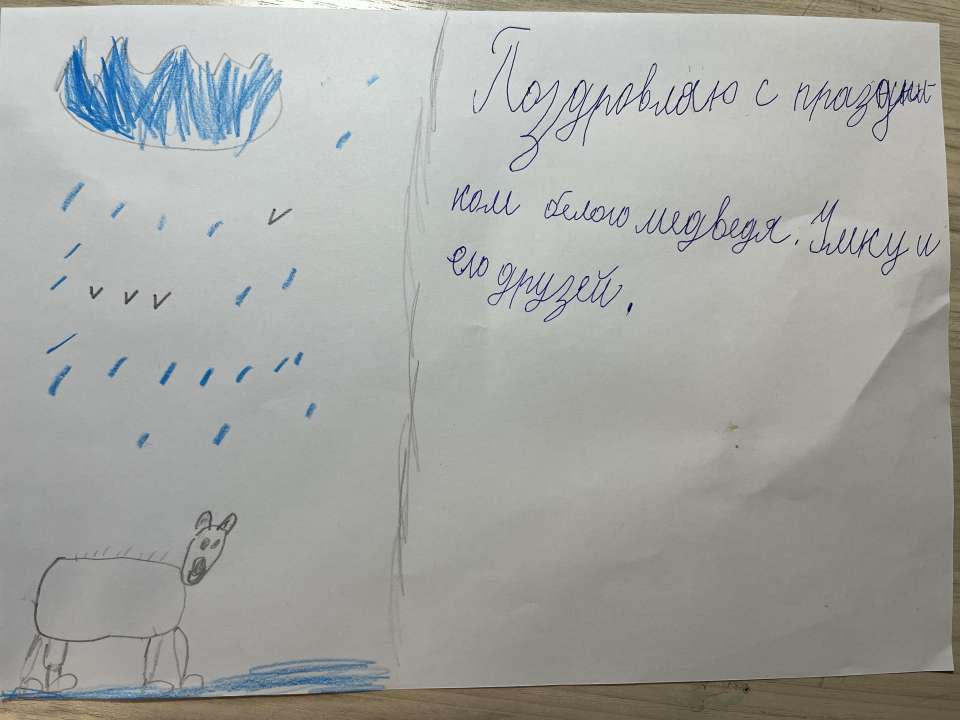 Поздровляю с праздни-
ком белого медведя. Умку и
его друзей.